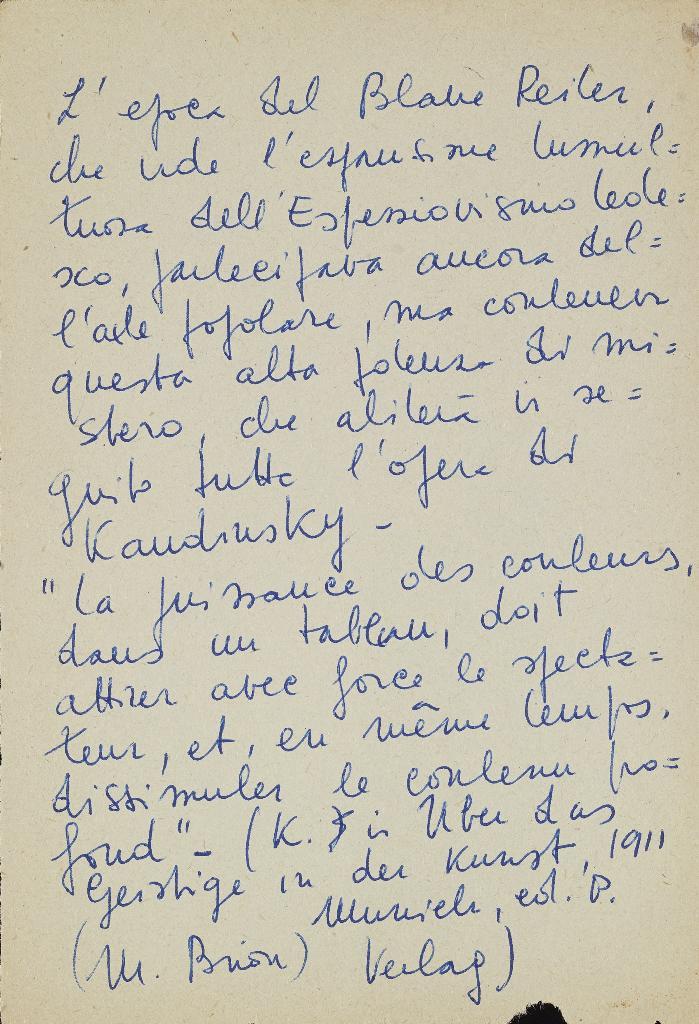 L'epoca del Blaue Reiter,
che vide l'espansione tumul=
tuosa dell'Espessiovismo tede=
sco, partecipava ancora del=
l'arte popolare, ma conteneva
questa alta potenza di mi=
stero, che aliterà in se=
guito tutta l'opera di
Kandinsky -
"La puissance des couleurs,
dans un tableau, doit
attirer avec force le specta=
teur, et, en même temps,
dissimuler le contenu pro=
fond" - (K. in Uber das
Geistige in der Kunst, 1911
Munich, ed. P.
(M. Brion) Verlag)